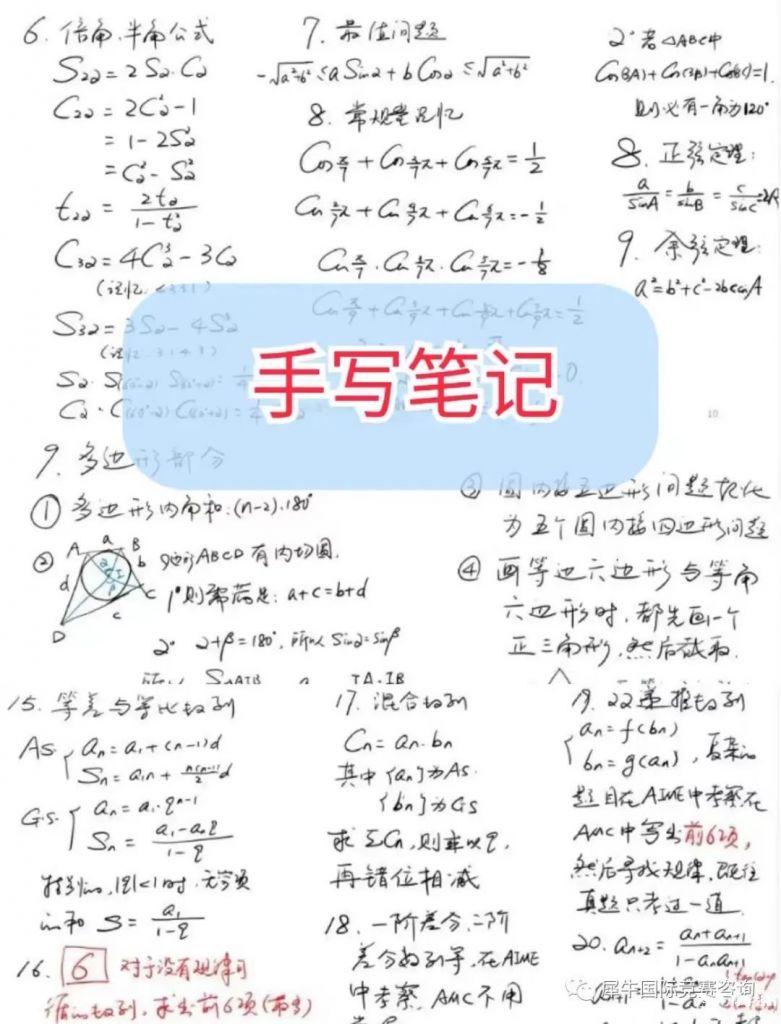 6. 倍角、半角公式
S2α = 2Sα·Cα
C2α = 2Cα² - 1
= 1 - 2Sα²
= Cα² - Sα²
t2α = 2tα / (1 - tα²)
C3α = 4Cα³ - 3Cα
S3α = 3Sα - 4Sα³
7. 最值问题
-√(a²+b²) ≤ a Sinα + b Cosα ≤ √(a²+b²)
8. 常规量记忆
Cos π/7 + Cos 3/7π + Cos 5/7π = 1/2
Cos 2/7π + Cos 4/7π + Cos 6/7π = -1/2
2° 若△ABC中
Cos(3A)+Cos(3B)+Cos(3C)=1.
则必有一角为120°
8. 正弦定理:
a/sinA = b/sinB = c/sinC = 2R
9. 余弦定理:
a² = b²+c²-2bc cosA
手写笔记
10
9. 多边形部分
① 多边形内角和: (n-2)·180°
② 四边形ABCD有内切圆.
A a B
b
d
C
c
D
1° 则需满足: a+c=b+d
2° α+β=180°, 所以 Sinα=Sinβ
③ 圆内接五边形问题转化
为五个圆内接四边形问题
④ 画等边六边形与等角
六边形时, 都先画一个
正三角形, 然后截取.
15. 等差与等比数列
AS. { an = a1 + (n-1)d
Sn = a1n + n(n-1)/2 d
G.S. { an = a1·q^(n-1)
Sn = (a1 - anq) / (1 - q)
特别的, |q|<1时, 无穷项
的和 S = a1 / (1 - q)
16. 6 对于没有规律可
循的数列, 求出前6项
17. 混合数列
Cn = an·bn
其中 {an}为AS.
{bn}为GS
求ΣCn, 则乘以q,
再错位相减
18. 一阶差分、二阶
差分数列等, 在AIME
中考察, AMC不用
19. 双递推数列
{ an = f(bn)
bn = g(an) , 复杂的
题目在AIME中考察, 在
AMC中写出前6项,
然后寻找规律, 既往
真题只考过一道.
20. an+2 = (an + an+1) / (1 - an an+1)
犀牛国际竞赛咨询